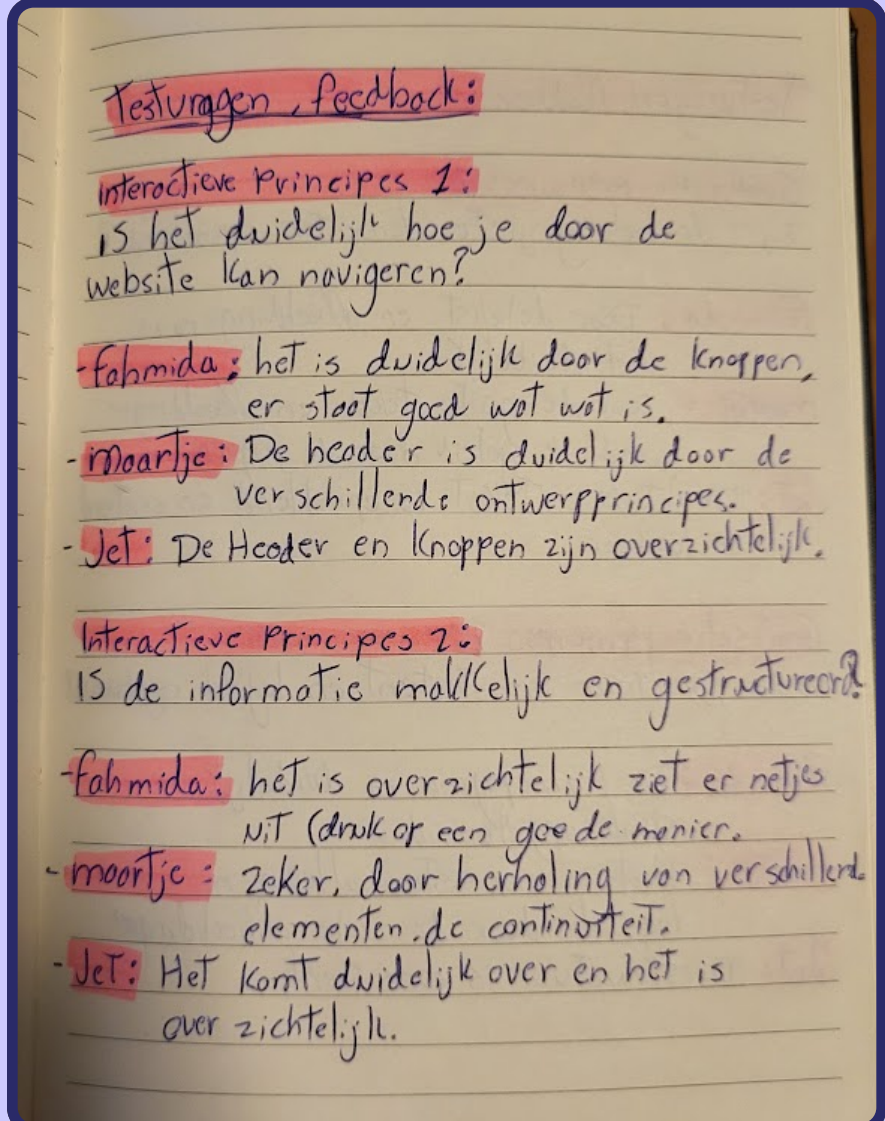 Testvragen, feedback:
interactieve Principes 1:
is het duidelijk hoe je door de
website kan navigeren?
-fahmida: het is duidelijk door de knoppen,
er staat goed wat wat is.
- maartje: De header is duidelijk door de
verschillende ontwerpprincipes.
- Jet: De Header en knoppen zijn overzichtelijk.
Interactieve Principes 2:
is de informatie makkelijk en gestructureerd?
-fahmida: het is overzichtelijk ziet er netjes
uit (druk op een goede manier.
- maartje: Zeker, door herhaling van verschillend.
elementen. de continuïteit.
- Jet: Het komt duidelijk over en het is
overzichtelijk.